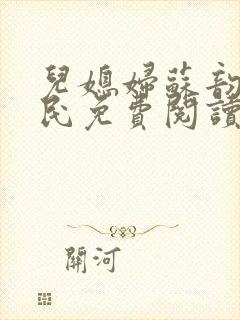 兒媳婦蘇韵
民免費閱讀
關河